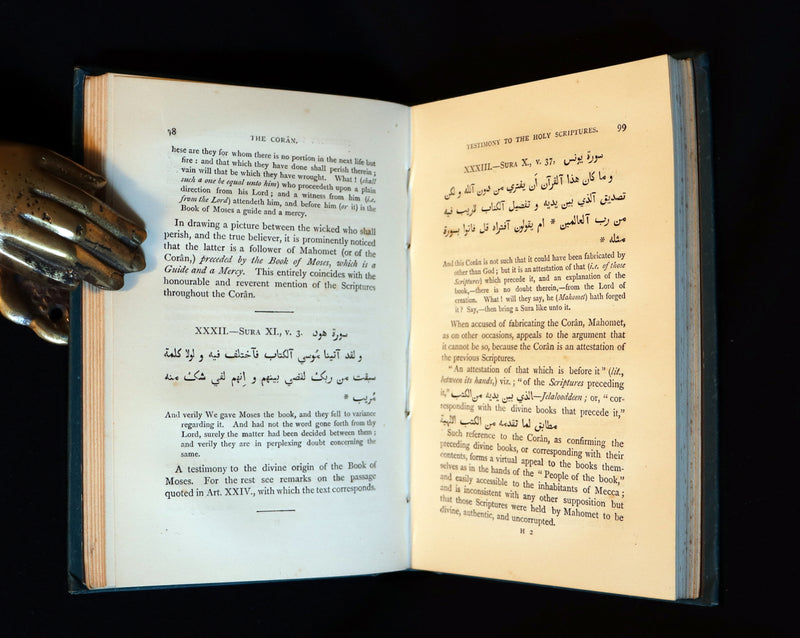 98
THE CORÂN.
hese are they for whom there is no portion in the next life but
fire: and that which they have done shall perish therein;
vain will that be which they have wrought. What! (shall
such a one be equal unto him) who proceedeth upon a plain
direction from his Lord; and a witness from him (i.e.
from the Lord) attendeth him, and before him (or it) is the
Book of Moses a guide and a mercy.
In drawing a picture between the wicked who shall
perish, and the true believer, it is prominently noticed
that the latter is a follower of Mahomet (or of the
Corân,) preceded by the Book of Moses, which is a
Guide and a Mercy. This entirely coincides with the
honourable and reverent mention of the Scriptures
throughout the Corân.
XXXII.—SURA XI., v. 3. سورة هود
و لقد آتينا مُوسي آلكتاب فآختلف فيه و لولا كلمة
سبقت من ربك لقضي بينهم و إنهم لفي شك منه
مُريب *
And verily We gave Moses the book, and they fell to variance
regarding it. And had not the word gone forth from thy
Lord, surely the matter had been decided between them;
and verily they are in perplexing doubt concerning the
same.
A testimony to the divine origin of the Book of
Moses. For the rest see remarks on the passage
quoted in Art. XXIV., with which the text corresponds.
TESTIMONY TO THE HOLY SCRIPTURES. 99
XXXIII.—SURA X., v. 37, سورة يونس
و ما كان هذا آلقرآن أن يفتري من دون آلله و لكن
تصديق آلذي بين يديه و تفصيل آلكتاب لاريب فيه
من رب آلعالمين * ام يقولون آفتراه قل فاتوا بسورة
مثله *
And this Corân is not such that it could have been fabricated by
other than God; but it is an attestation of that (i.e. of those
Scriptures) which precede it, and an explanation of the
book,—there is no doubt therein,—from the Lord of
creation. What! will they say, he (Mahomet) hath forged
it? Say,—then bring a Sura like unto it.
When accused of fabricating the Corân, Mahomet,
as on other occasions, appeals to the argument that
it cannot be so, because the Corân is an attestation of
the previous Scriptures.
"An attestation of that which is before it" (lit.,
between its hands,) viz.; "of the Scriptures preceding
it," آلذي بين يديه من الكتب—Jelalooddeen; or, "cor-
responding with the divine books that precede it,"
مطابق لما تقدمه من الكتب الالهية
Such reference to the Corân, as confirming the
preceding divine books, or corresponding with their
contents, forms a virtual appeal to the books them-
selves as in the hands of the "People of the book,"
and easily accessible to the inhabitants of Mecca;
and is inconsistent with any other supposition but
that those Scriptures were held by Mahomet to be
divine, authentic, and uncorrupted.
H 2